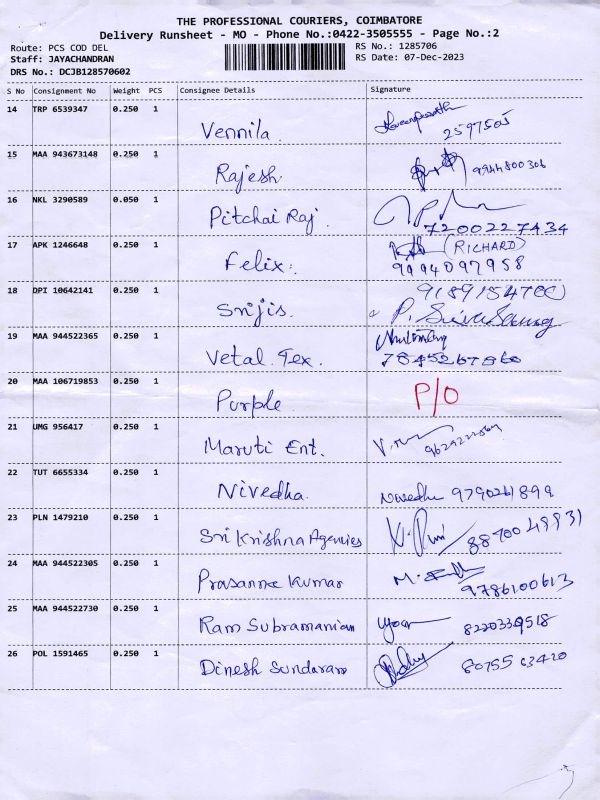 THE PROFESSIONAL COURIERS, COIMBATORE
Delivery Runsheet - MO - Phone No.:0422-3505555 - Page No.:2
Route: PCS COD DEL RS No.: 1285706
Staff: JAYACHANDRAN RS Date: 07-Dec-2023
DRS No.: DCJB128570602
S No Consignment No Weight PCS Consignee Details Signature
14 TRP 6539347 0.250 1 Vennila. 2597505
15 MAA 943673148 0.250 1 Rajesh 9944800306
16 NKL 3290589 0.050 1 Pitchai Raj. 7200227434
17 APK 1246648 0.250 1 Felix. (RICHARD)
9994097958
18 DPI 10642141 0.250 1 Srijis.
19 MAA 944522365 0.250 1 Vetal. Tex.
20 MAA 106719853 0.250 1 Purple P/O
21 UMG 956417 0.250 1 Maruti Ent.
22 TUT 6655334 0.250 1 Nivedha. Nivedha 9790261899
23 PLN 1479210 0.250 1 Sri Krishna Agencies
24 MAA 944522305 0.250 1 Prasanna Kumar 9786100613
25 MAA 944522730 0.250 1 Ram Subramanian 8220339518
26 POL 1591465 0.250 1 Dinesh Sundaram 8075563420